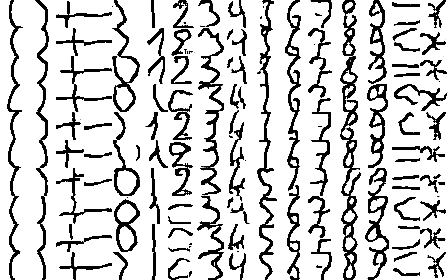 ( ) + - 0 1 2 3 4 5 6 7 8 9 = *
( ) + - 0 1 2 3 4 5 6 7 8 9 = *
( ) + - 0 1 2 3 4 5 6 7 8 9 = *
( ) + - 0 1 2 3 4 5 6 7 8 9 = *
( ) + - 0 1 2 3 4 5 6 7 8 9 = *
( ) + - 0 1 2 3 4 5 6 7 8 9 = *
( ) + - 0 1 2 3 4 5 6 7 8 9 = *
( ) + - 0 1 2 3 4 5 6 7 8 9 = *
( ) + - 0 1 2 3 4 5 6 7 8 9 = *
( ) + - 0 1 2 3 4 5 6 7 8 9 = *